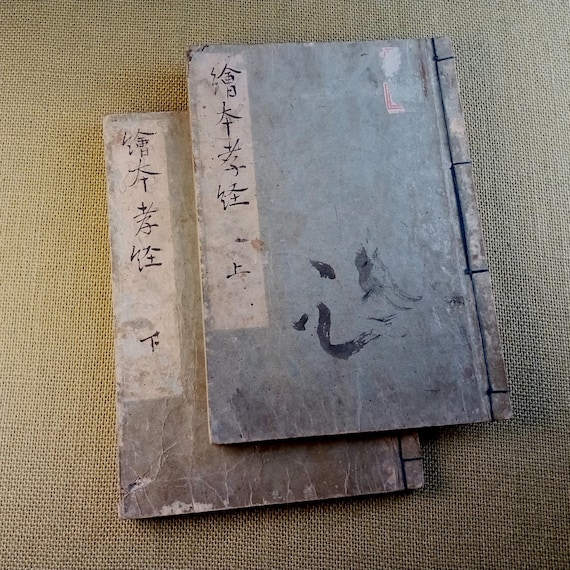 繪本孝経 上
繪本孝経 下